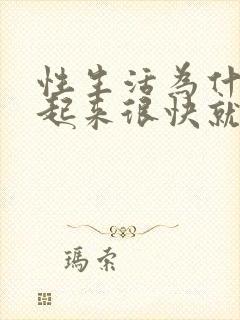 性生活為什
起来很快就
瑪索